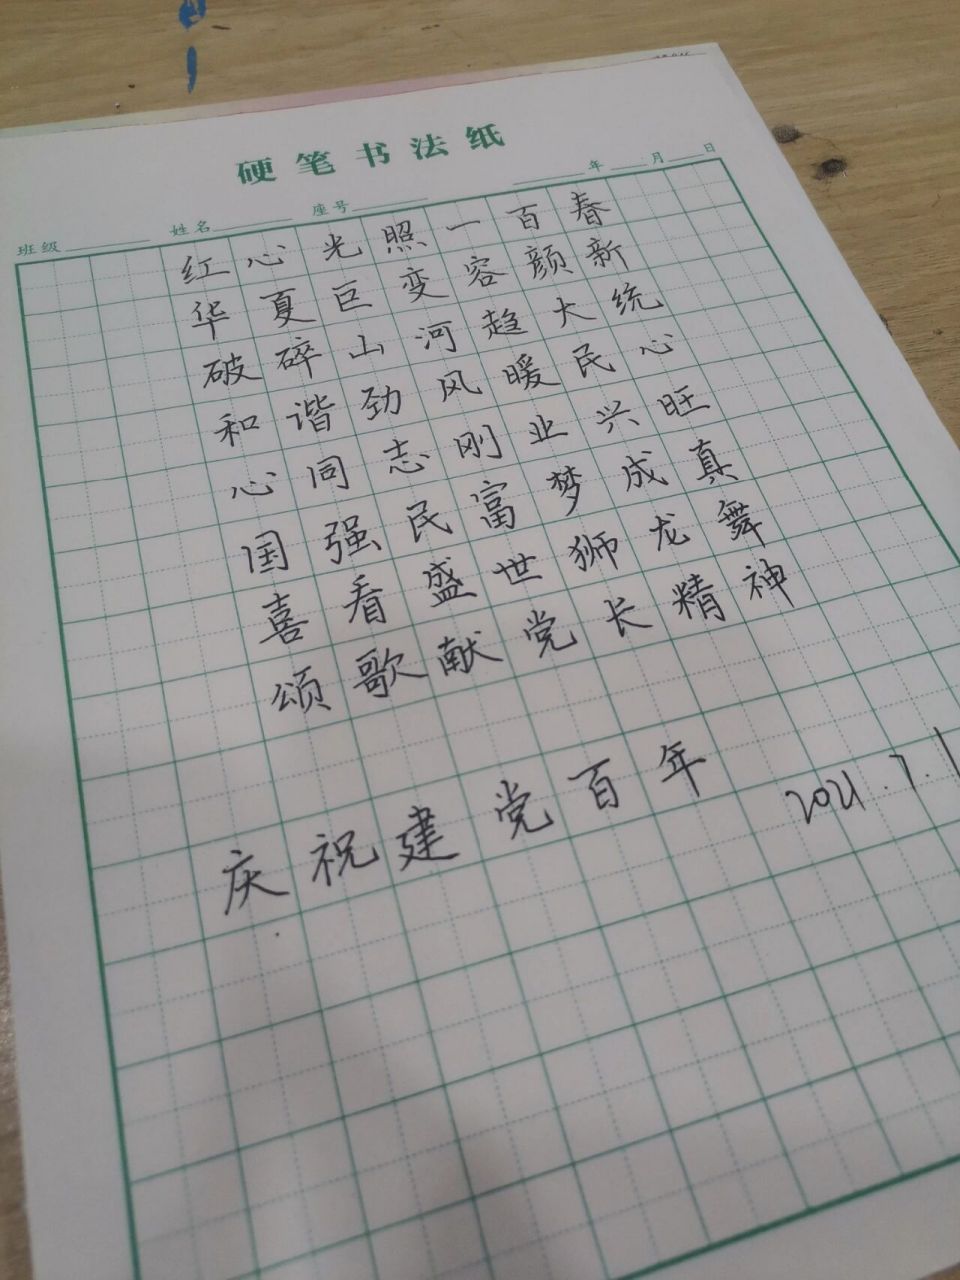 硬笔书法纸
班级 姓名 座号 年 月 日
红心光照一百春
华夏巨变容颜新
破碎山河趋大统
和谐劲风暖民心
心同志刚业兴旺
国强民富梦成真
喜看盛世狮龙舞
颂歌献党长精神
庆祝建党百年
2021.7.1